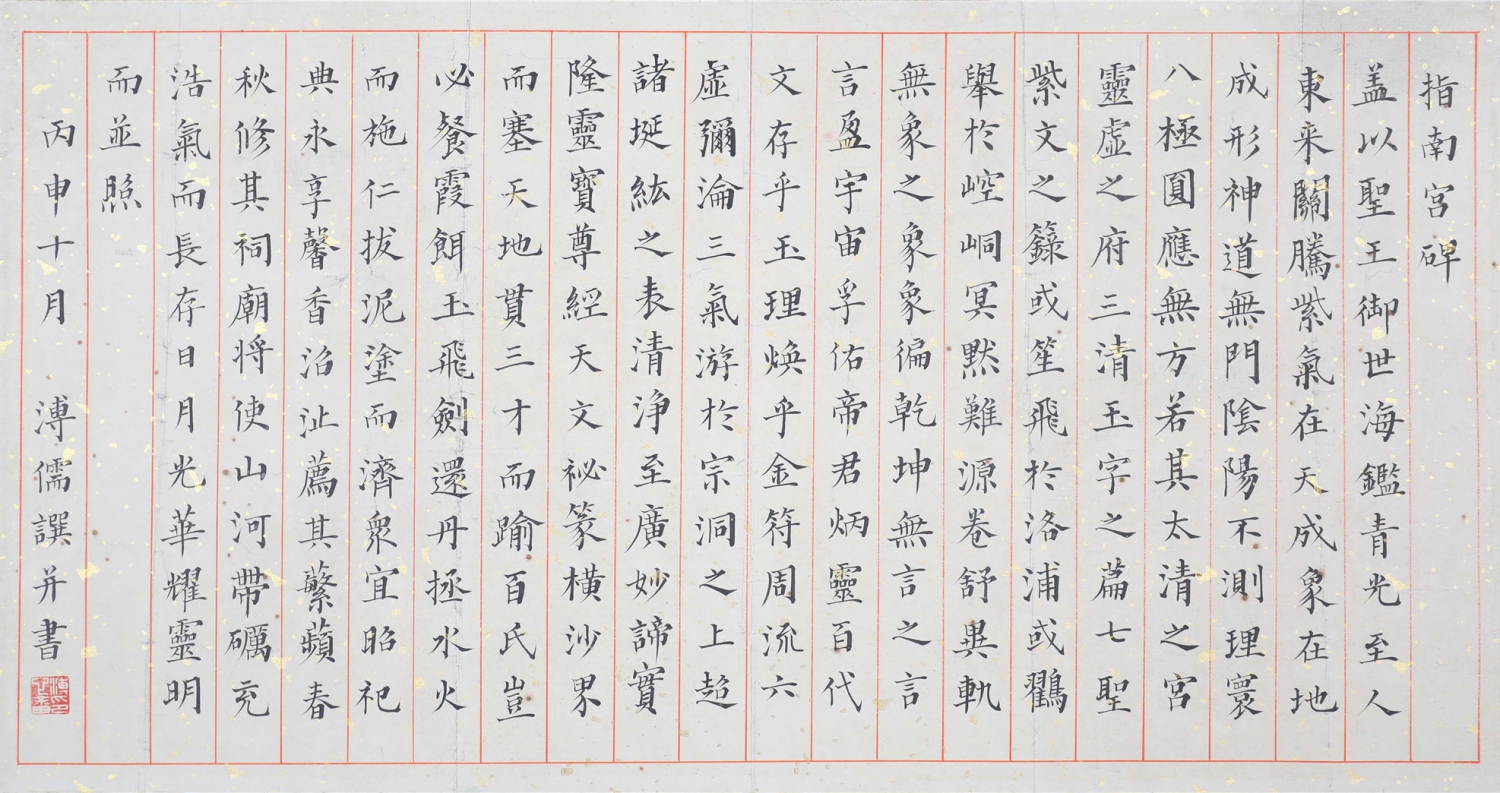 指南宮碑
盖以聖王御世海鑑青光至人
東来關騰紫氣在天成象在地
成形神道無門陰陽不測理寰
八極圓應無方若其太清之宮
靈虛之府三清玉字之篇七聖
紫文之籙或笙飛於洛浦或鸛
舉於崆峒冥默難源卷舒異軌
無象之象象徧乾坤無言之言
言盈宇宙孚佑帝君炳靈百代
文存乎玉理煥乎金符周流六
虛彌淪三氣游於宗洞之上超
諸埏紘之表清浄至廣妙諦實
隆靈寶尊經天文祕篆橫沙界
而塞天地貫三才而踰百氏豈
必餐霞餌玉飛劍還丹拯水火
而施仁拔泥塗而濟衆宜昭祀
典永享馨香沼沚薦其蘩蘋春
秋修其祠廟將使山河帶礪充
浩氣而長存日月光華耀靈明
而並照
丙申十月 溥儒譔并書